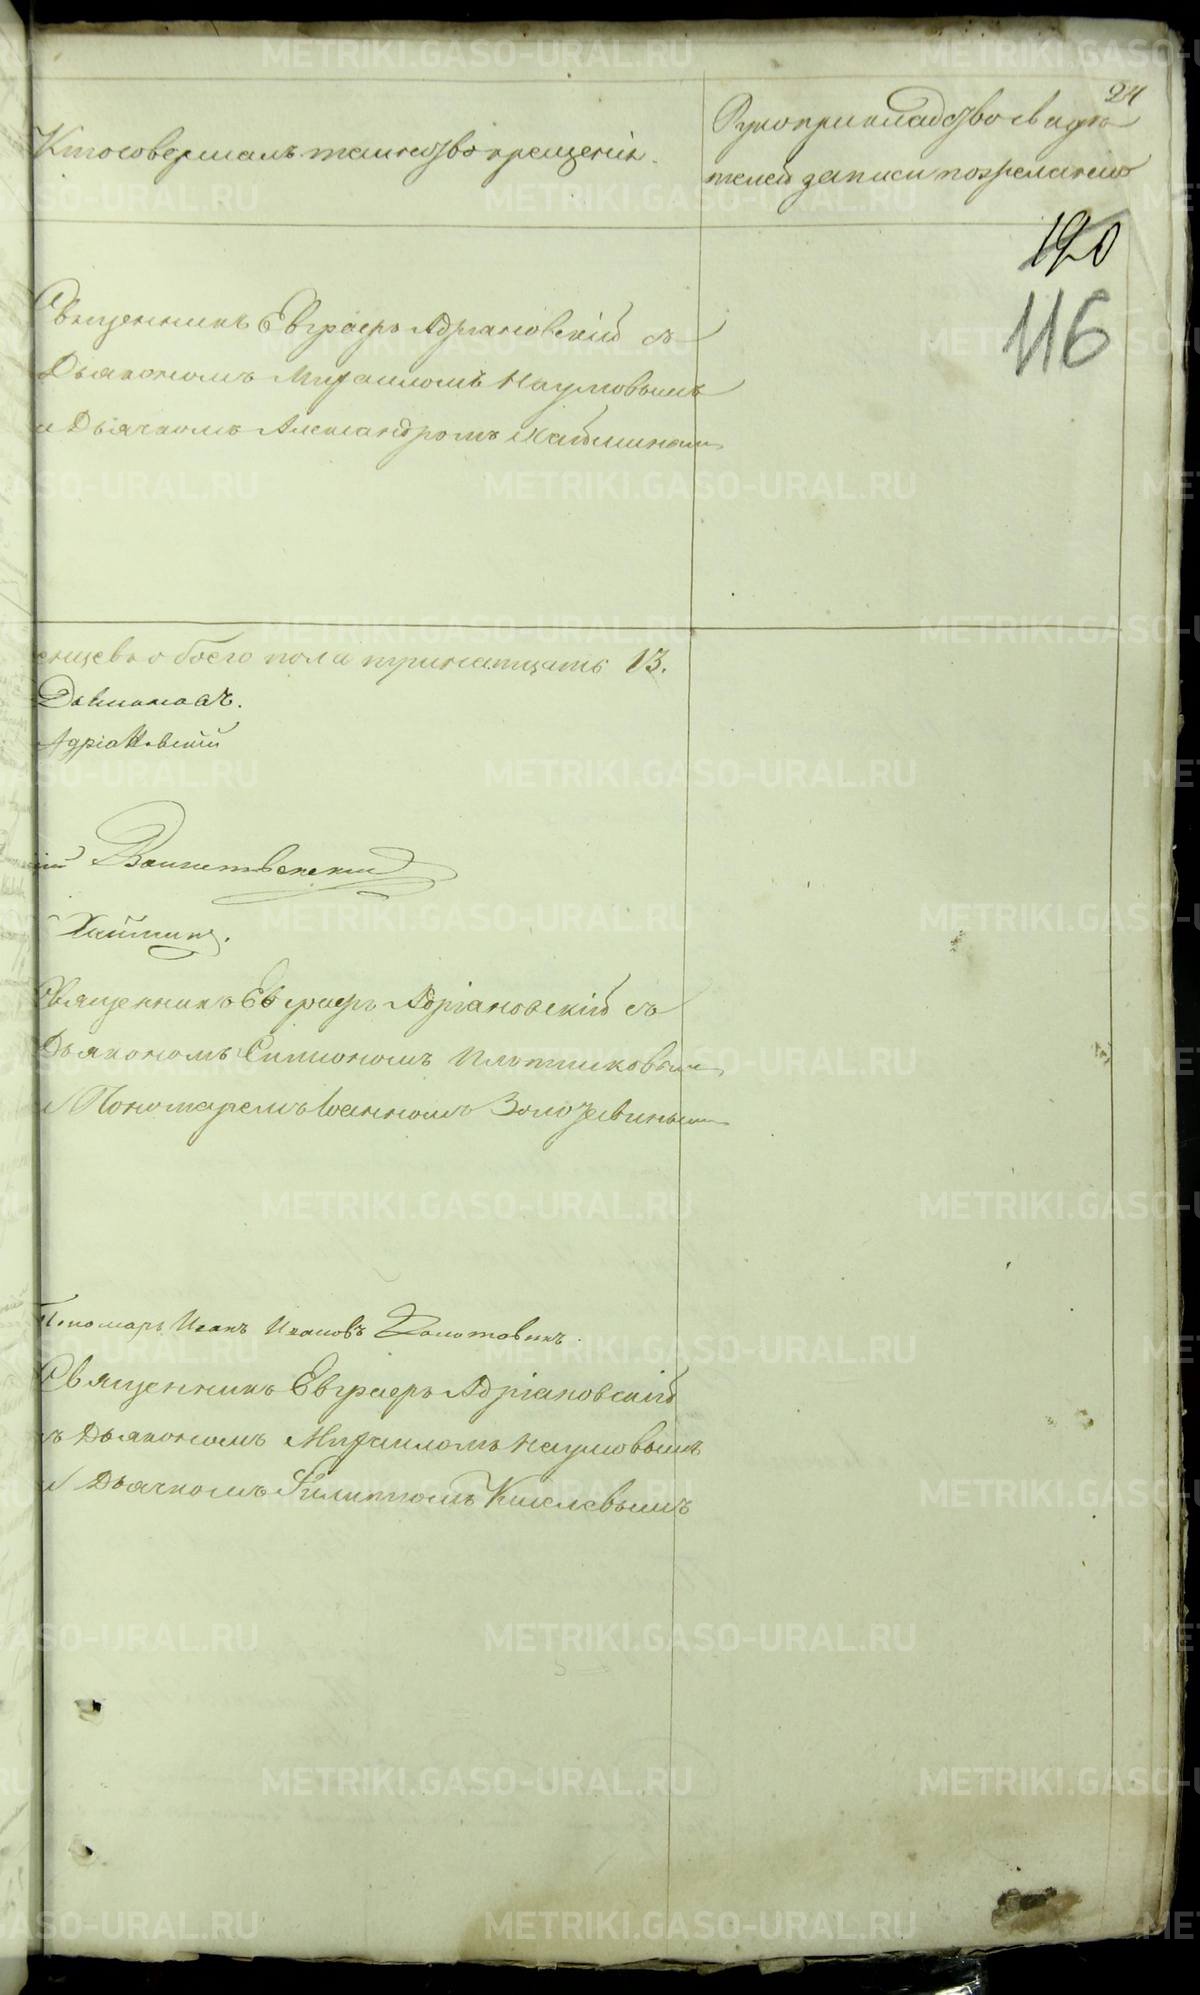 24
Кто совершалъ таинство крещенія.
Рукоприкладство свидѣ
телей записи по желанію
120
116
Священникъ Евграфъ Адріановскій съ
Дьякономъ Михаиломъ Наумовымъ
и Дьячкомъ Александромъ Хайминым
енцевъ обоего пола тринатцать 13.
Адріановскій
Хаймин.
Священникъ Евграфъ Адріановскій съ
Дьякономъ Симіономъ Плотниковым
и Пономаремъ Іоанномъ Золотавиным
Пономарь Иванъ Ивановъ Золотавинъ.
Священникъ Евграфъ Адріановскій
съ Дьякономъ Михаиломъ Наумовымъ
и Дьячкомъ Филиппомъ Киселевымъ
METRIKI.GASO-URAL.RU